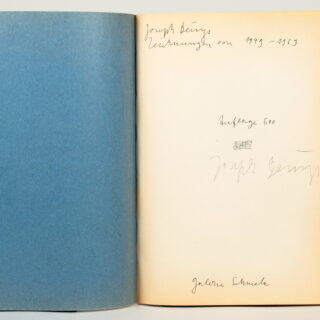 Joseph Beuys
Zeichnungen von 1949-1969
Auflage 600
Joseph Beuys
Galerie Schmela